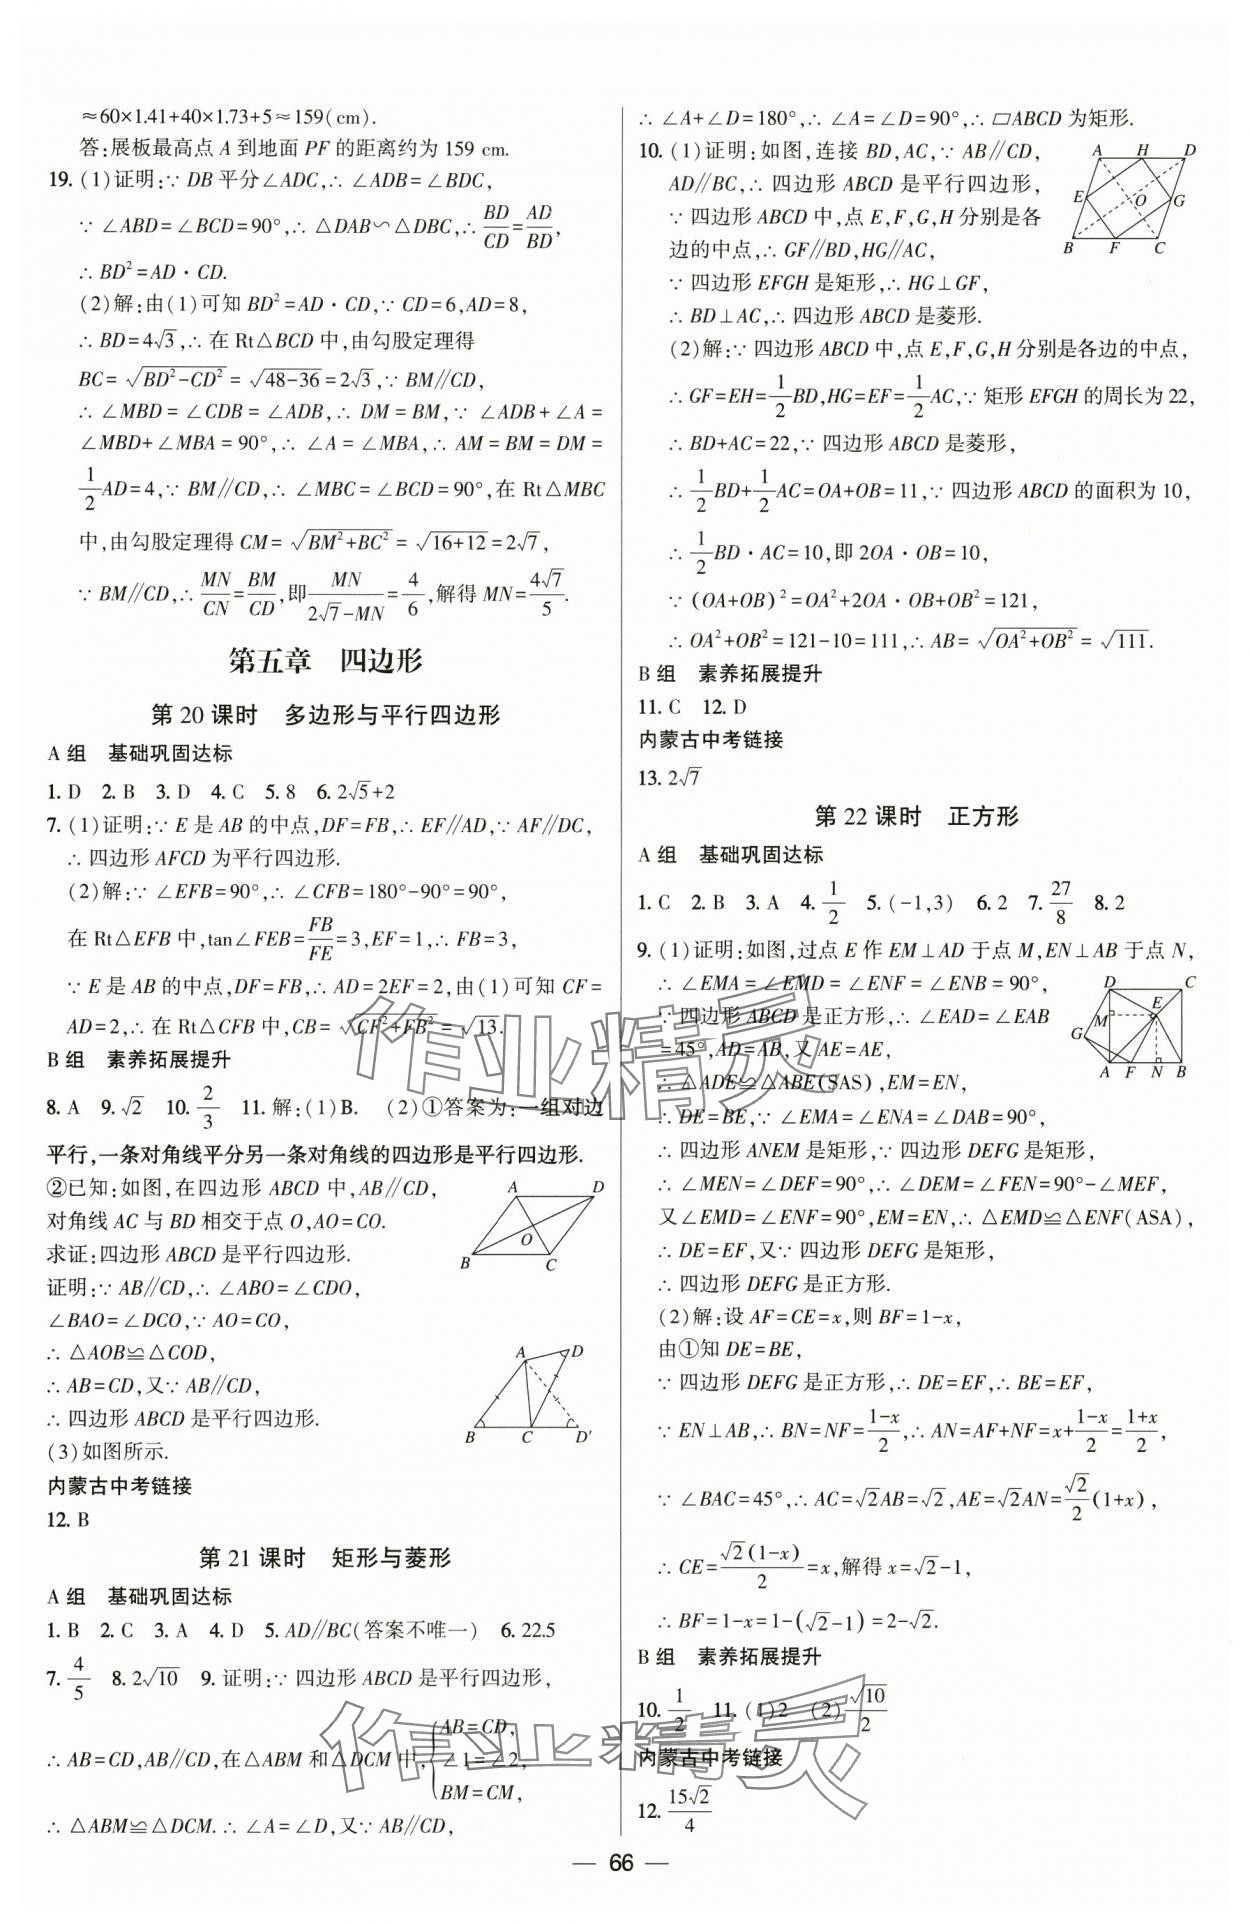 ≈60×1.41+40×1.73+5≈159(cm).
答:展板最高点 A 到地面 PF 的距离约为 159 cm.
19. (1)证明:∵ DB 平分∠ADC,∴ ∠ADB=∠BDC,
∵ ∠ABD=∠BCD=90°,∴ △DAB∽△DBC,∴ BD/CD=AD/BD,
∴ BD²=AD·CD.
(2)解:由(1)可知 BD²=AD·CD,∵ CD=6,AD=8,
∴ BD=4√3,∴ 在 Rt△BCD 中,由勾股定理得
BC=√(BD²-CD²)=√(48-36)=2√3,∵ BM∥CD,
∴ ∠MBD=∠CDB=∠ADB,∴ DM=BM,∵ ∠ADB+∠A=
∠MBD+∠MBA=90°,∴ ∠A=∠MBA,∴ AM=BM=DM=
1/2AD=4,∵ BM∥CD,∴ ∠MBC=∠BCD=90°,在 Rt△MBC
中,由勾股定理得 CM=√(BM²+BC²)=√(16+12)=2√7,
∵ BM∥CD,∴ MN/CN=BM/CD,即MN/(2√7-MN)=4/6,解得 MN=4√7/5.
第五章 四边形
第 20 课时 多边形与平行四边形
A 组 基础巩固达标
1. D 2. B 3. D 4. C 5. 8 6. 2√5+2
7. (1)证明:∵ E 是 AB 的中点,DF=FB,∴ EF∥AD,∵ AF∥DC,
∴ 四边形 AFCD 为平行四边形.
(2)解:∵ ∠EFB=90°,∴ ∠CFB=180°-90°=90°,
在 Rt△EFB 中,tan∠FEB=FB/FE=3,EF=1,∴ FB=3,
∵ E 是 AB 的中点,DF=FB,∴ AD=2EF=2,由(1)可知 CF=
AD=2,∴ 在 Rt△CFB 中,CB=√(CF²+FB²)=√13.
B 组 素养拓展提升
8. A 9. √2 10. 2/3 11. 解:(1)B. (2)①答案为:一组对边
平行,一条对角线平分另一条对角线的四边形是平行四边形.
②已知:如图,在四边形 ABCD 中,AB∥CD,
对角线 AC 与 BD 相交于点 O,AO=CO.
求证:四边形 ABCD 是平行四边形.
证明:∵ AB∥CD,∴ ∠ABO=∠CDO,
∠BAO=∠DCO,∵ AO=CO,
∴ △AOB≌△COD,
∴ AB=CD,又∵ AB∥CD,
∴ 四边形 ABCD 是平行四边形.
(3)如图所示.
A D
O
B C
A D
B C D′
内蒙古中考链接
12. B
第 21 课时 矩形与菱形
A 组 基础巩固达标
1. B 2. C 3. A 4. D 5. AD∥BC(答案不唯一) 6. 22.5
7. 4/5 8. 2√10 9. 证明:∵ 四边形 ABCD 是平行四边形,
∴ AB=CD,AB∥CD,在△ABM 和△DCM 中,{AB=CD, ∠1=∠2, BM=CM,
∴ △ABM≌△DCM. ∴ ∠A=∠D,又∵ AB∥CD,
∴ ∠A+∠D=180°,∴ ∠A=∠D=90°,∴ ▱ABCD 为矩形.
10. (1)证明:如图,连接 BD,AC,∵ AB∥CD,
AD∥BC,∴ 四边形 ABCD 是平行四边形,
∵ 四边形 ABCD 中,点 E,F,G,H 分别是各
边的中点,∴ GF∥BD,HG∥AC,
∵ 四边形 EFGH 是矩形,∴ HG⊥GF,
∴ BD⊥AC,∴ 四边形 ABCD 是菱形.
A H D
E O G
B F C
(2)解:∵ 四边形 ABCD 中,点 E,F,G,H 分别是各边的中点,
∴ GF=EH=1/2BD,HG=EF=1/2AC,∵ 矩形 EFGH 的周长为 22,
∴ BD+AC=22,∵ 四边形 ABCD 是菱形,
∴ 1/2BD+1/2AC=OA+OB=11,∵ 四边形 ABCD 的面积为 10,
∴ 1/2BD·AC=10,即 2OA·OB=10,
∵ (OA+OB)²=OA²+2OA·OB+OB²=121,
∴ OA²+OB²=121-10=111,∴ AB=√(OA²+OB²)=√111.
B 组 素养拓展提升
11. C 12. D
内蒙古中考链接
13. 2√7
第 22 课时 正方形
A 组 基础巩固达标
1. C 2. B 3. A 4. 1/2 5. (-1,3) 6. 2 7. 27/8 8. 2
9. (1)证明:如图,过点 E 作 EM⊥AD 于点 M,EN⊥AB 于点 N,
∴ ∠EMA=∠EMD=∠ENF=∠ENB=90°,
∵ 四边形 ABCD 是正方形,∴ ∠EAD=∠EAB
=45°,AD=AB,又 AE=AE,
∴ △ADE≌△ABE(SAS),EM=EN,
∴ DE=BE,∵ ∠EMA=∠ENA=∠DAB=90°,
∴ 四边形 ANEM 是矩形,∵ 四边形 DEFG 是矩形,
∴ ∠MEN=∠DEF=90°,∴ ∠DEM=∠FEN=90°-∠MEF,
又∠EMD=∠ENF=90°,EM=EN,∴ △EMD≌△ENF(ASA),
∴ DE=EF,又∵ 四边形 DEFG 是矩形,
∴ 四边形 DEFG 是正方形.
D C
M E
G
A F N B
(2)解:设 AF=CE=x,则 BF=1-x,
由①知 DE=BE,
∵ 四边形 DEFG 是正方形,∴ DE=EF,∴ BE=EF,
∵ EN⊥AB,∴ BN=NF=(1-x)/2,∴ AN=AF+NF=x+(1-x)/2=(1+x)/2,
∵ ∠BAC=45°,∴ AC=√2AB=√2,AE=√2AN=√2/2(1+x),
∴ CE=√2(1-x)/2=x,解得 x=√2-1,
∴ BF=1-x=1-(√2-1)=2-√2.
B 组 素养拓展提升
10. 1/2 11. (1)2 (2)√10/2
内蒙古中考链接
12. 15√2/4
— 66 —
作业精灵
作业精灵